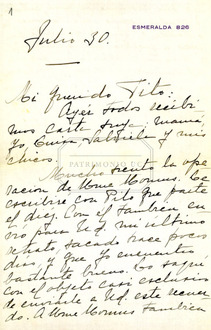 1
ESMERALDA 826
Julio 30.
Mi querido Tito:
Ayer todos recibi
mos carta suya, mamá,
yo, Gabriela y mis
chicos.
PATRIMONIO UC
Mucho sentí la ope
racion de Mme Mormus. Le
escribire con Tito que parte
el diez. Con el tambien en
vio para Ud. mi ultimo
retrato, sacado hace pocos
dias, y que yo encuentro
bastante bueno. Lo saqué
con el objeto casi exclusivo
de enviarle a Ud. este recuer
do. A Mme Mormus tambien